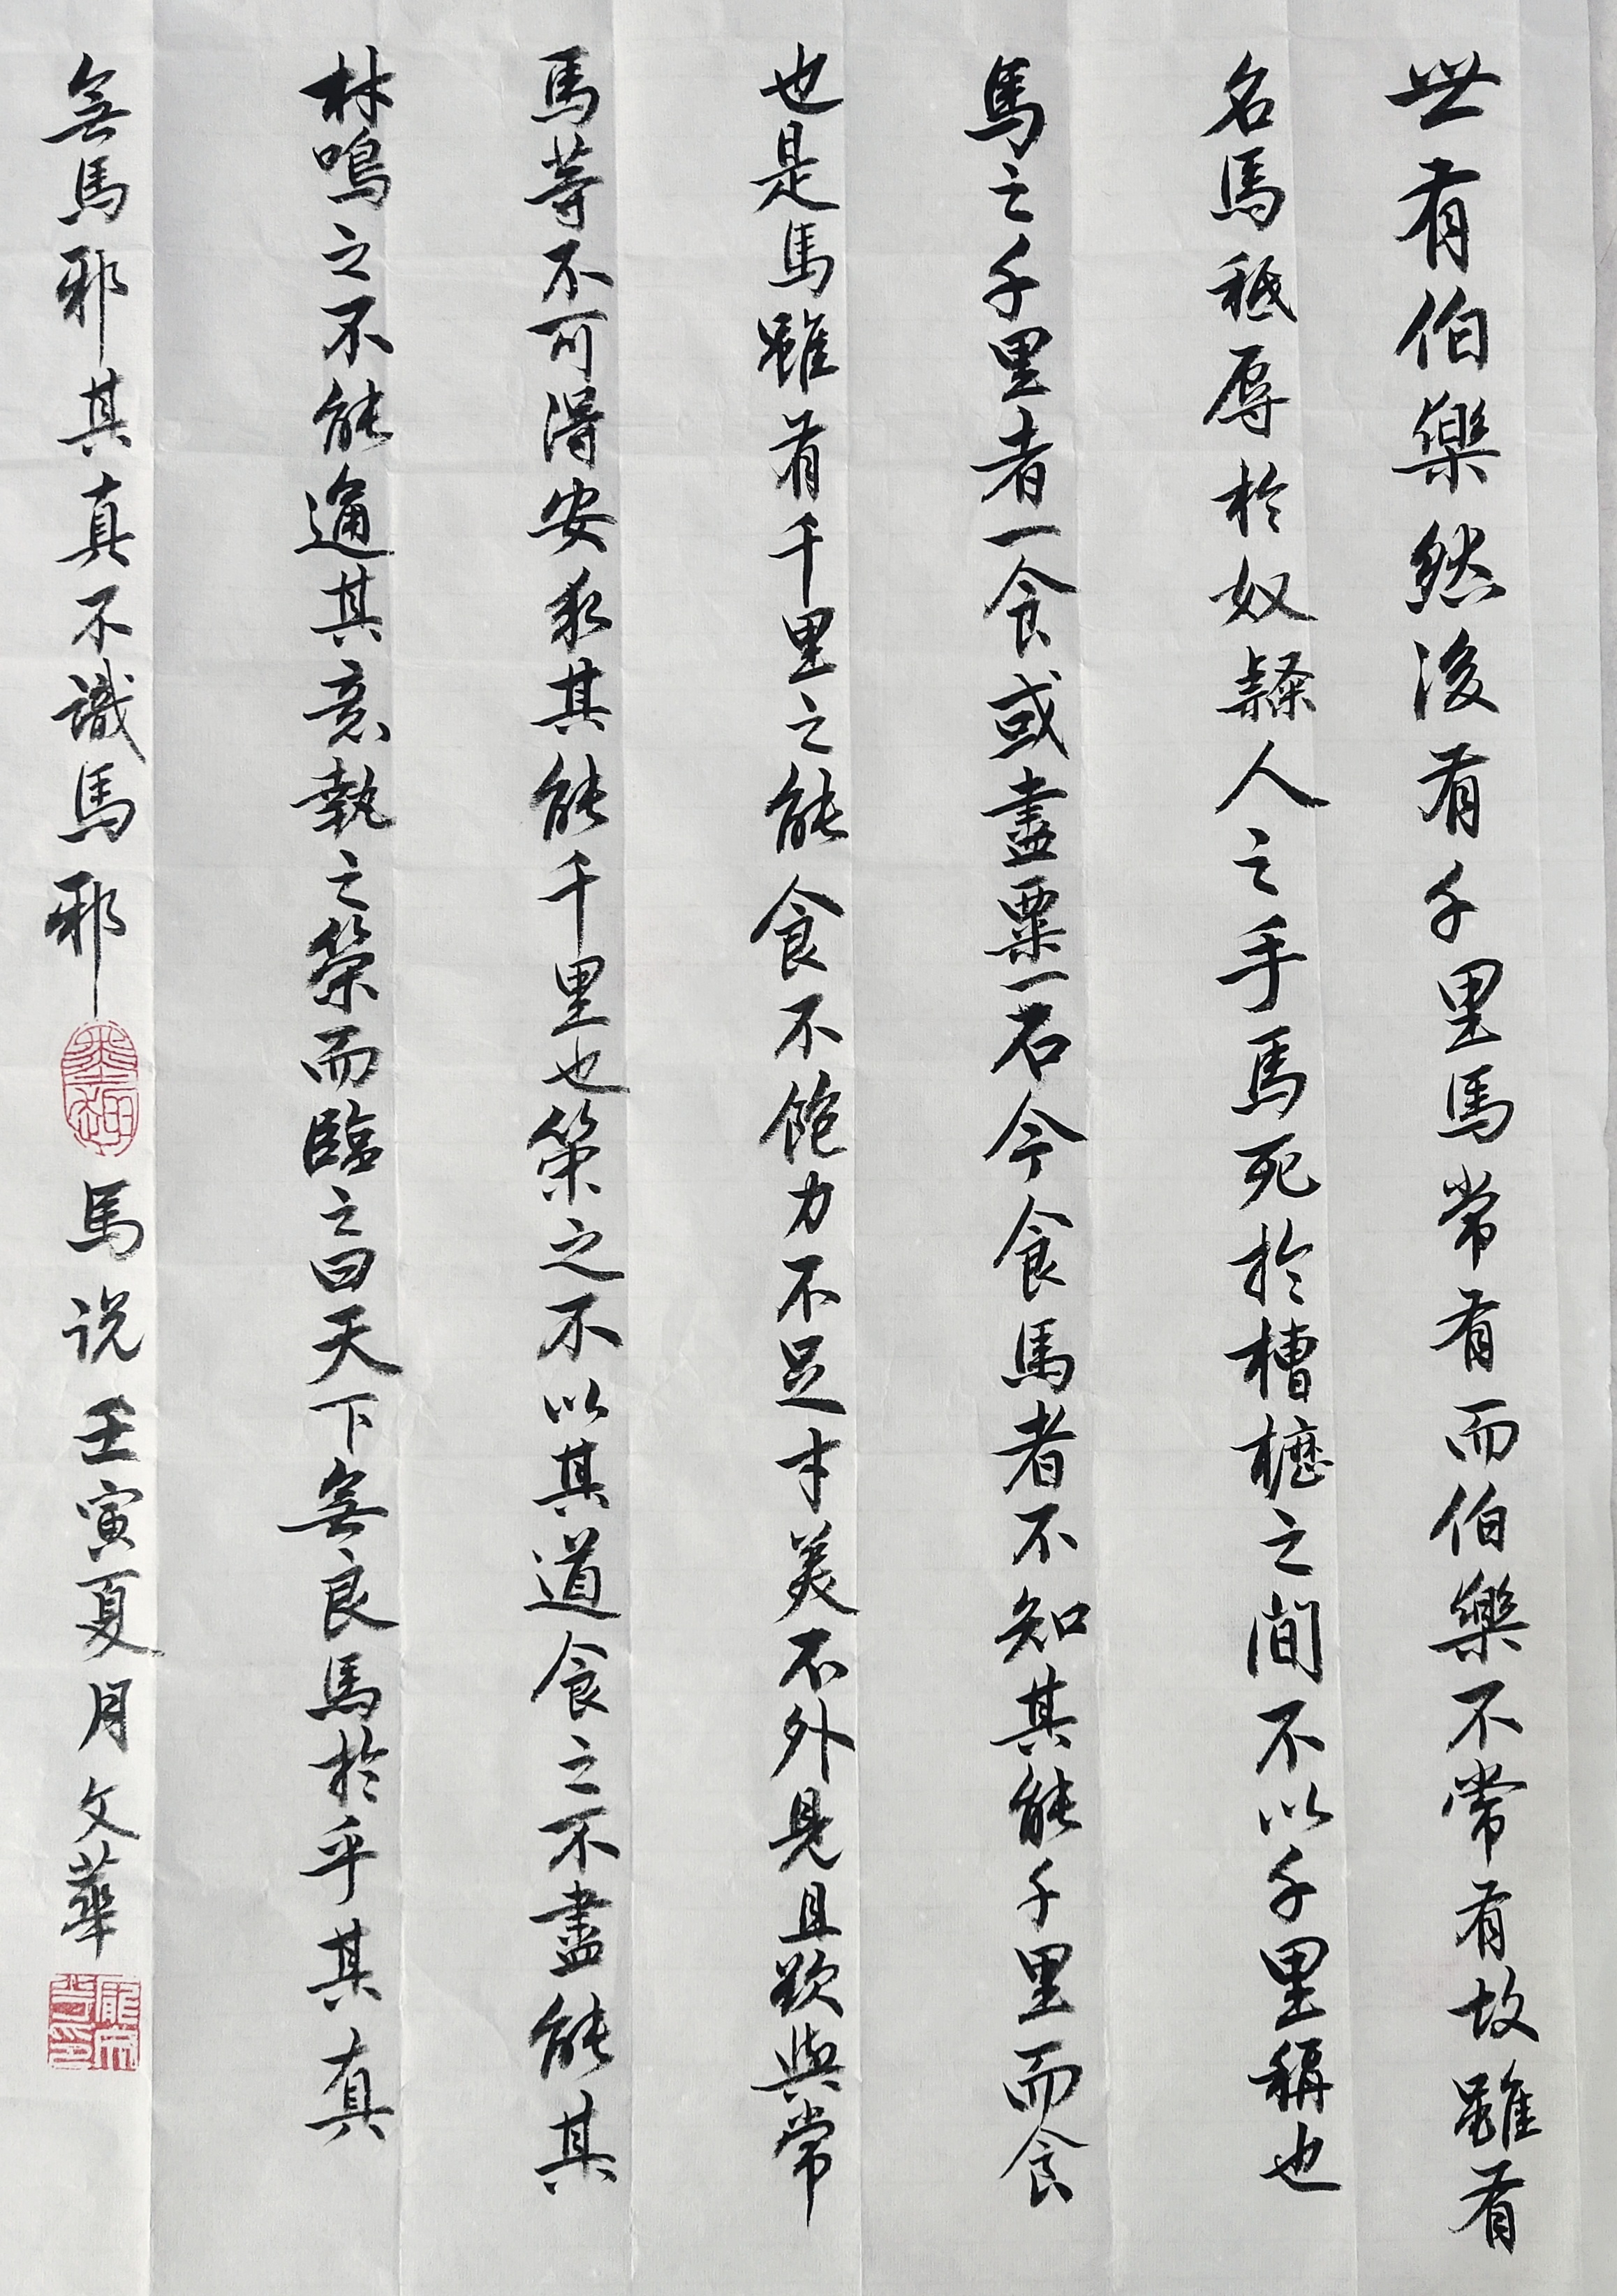 世有伯樂然後有千里馬常有而伯樂不常有故雖有
名馬秪辱於奴隸人之手馬死於槽櫪之間不以千里稱也
馬之千里者一食或盡粟一石今食馬者不知其能千里而食
也是馬雖有千里之能食不飽力不足才美不外見且欲與常
馬等不可得安求其能千里也策之不以其道食之不盡能其
材鳴之不能通其意執之策而臨之曰天下無良馬於乎其真
無馬邪其真不識馬邪 馬说 壬寅夏月 文華